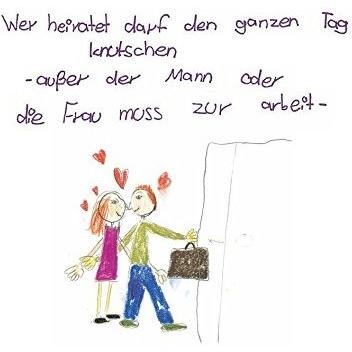 Wer heiratet darf den ganzen Tag
knutschen
-außer der Mann oder
die Frau muss zur arbeit-